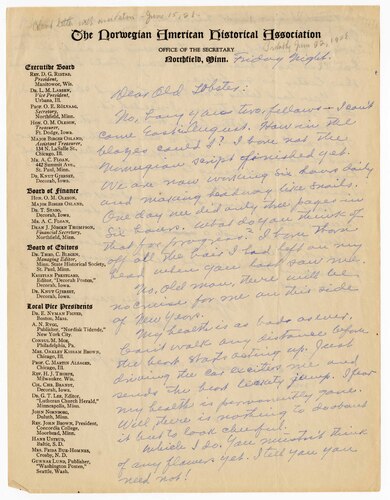 The Norwegian American Historical Association
OFFICE OF THE SECRETARY
Northfield, Minn.
Friday Night.
Executive Board
REV. D. G. RISTAD,
President,
Manitowoc, Wis.
DR. L. M. LARSEN,
Vice President,
Urbana, Ill.
PROF. O. E. RÖLVAAG,
Secretary,
Northfield, Minn.
HON. O. M. OLESON,
Treasurer,
Ft. Dodge, Iowa.
MAJOR BIRGER OSLAND,
Assistant Treasurer,
134 N. LaSalle St.,
Chicago, Ill.
MR. A. C. FLOAN,
442 Summit Ave.,
St. Paul, Minn.
DR. KNUT GJERSET,
Decorah, Iowa.
Board of Finance
HON. O. M. OLESON,
MAJOR BIRGER OSLAND,
DR. T. STABO,
Decorah, Iowa.
MR. A. C. FLOAN,
DEAN J. JÖRGEN THOMPSON,
Financial Secretary,
Northfield, Minn.
Board of Editors
DR. THEO. C. BLEGEN,
Managing Editor,
Minn. State Historical Society,
St. Paul, Minn.
KRISTIAN PRESTGARD,
Editor, "Decorah Posten,"
Decorah, Iowa.
DR. KNUT GJERSET,
Decorah, Iowa.
Local Vice Presidents
DR. E. NYMAN FIGVED,
Boston, Mass.
A. N. RYGG,
Publisher, "Nordisk Tidende,"
New York City.
CONSUL M. MOE,
Philadelphia, Pa.
MRS. OAKLEY KISSAM BROWN,
Chicago, Ill.
PROF. C. MARTIN ALSAGER,
Chicago, Ill.
REV. H. J. THORPE,
Milwaukee, Wis.
COL. CHR. BRANDT,
Decorah, Iowa.
DR. G. T. LEE, Editor,
"Lutheran Church Herald,"
Minneapolis, Minn.
JOHN NORBORG,
Duluth, Minn.
REV. JOHN BROWN, President,
Concordia College,
Moorhead, Minn.
HANS USTRUD,
Baltic, S. D.
MRS. FRIDA BUE-HOMNES,
Crosby, N. D.
GUNNAR LUND, Publisher,
"Washington Posten,"
Seattle, Wash.
Dear Old Lobster:
No, Fairy yarns two, fellows – I can't
come East in August. How in the
blazes could I? I have not the
Norwegian script finished yet.
We are now working six hours daily
and making headway like snails.
One day we did only three pages in
six hours. What do you think of
that for progress? I have torn
off all the hair I had left on my
head when you last saw me.
No, Old man there will be
no cruise for me on this side
of New Years.
My health is as bad as ever.
Can't walk any distance before
the heart starts acting up. Just
driving the car excites me and
sends the heart beats jump. I fear
my health is permanently gone.
Well there is nothing to do about
it but to look cheerful.
Which I do. You mustn't think
of any flowers yet. I tell you you
need not!